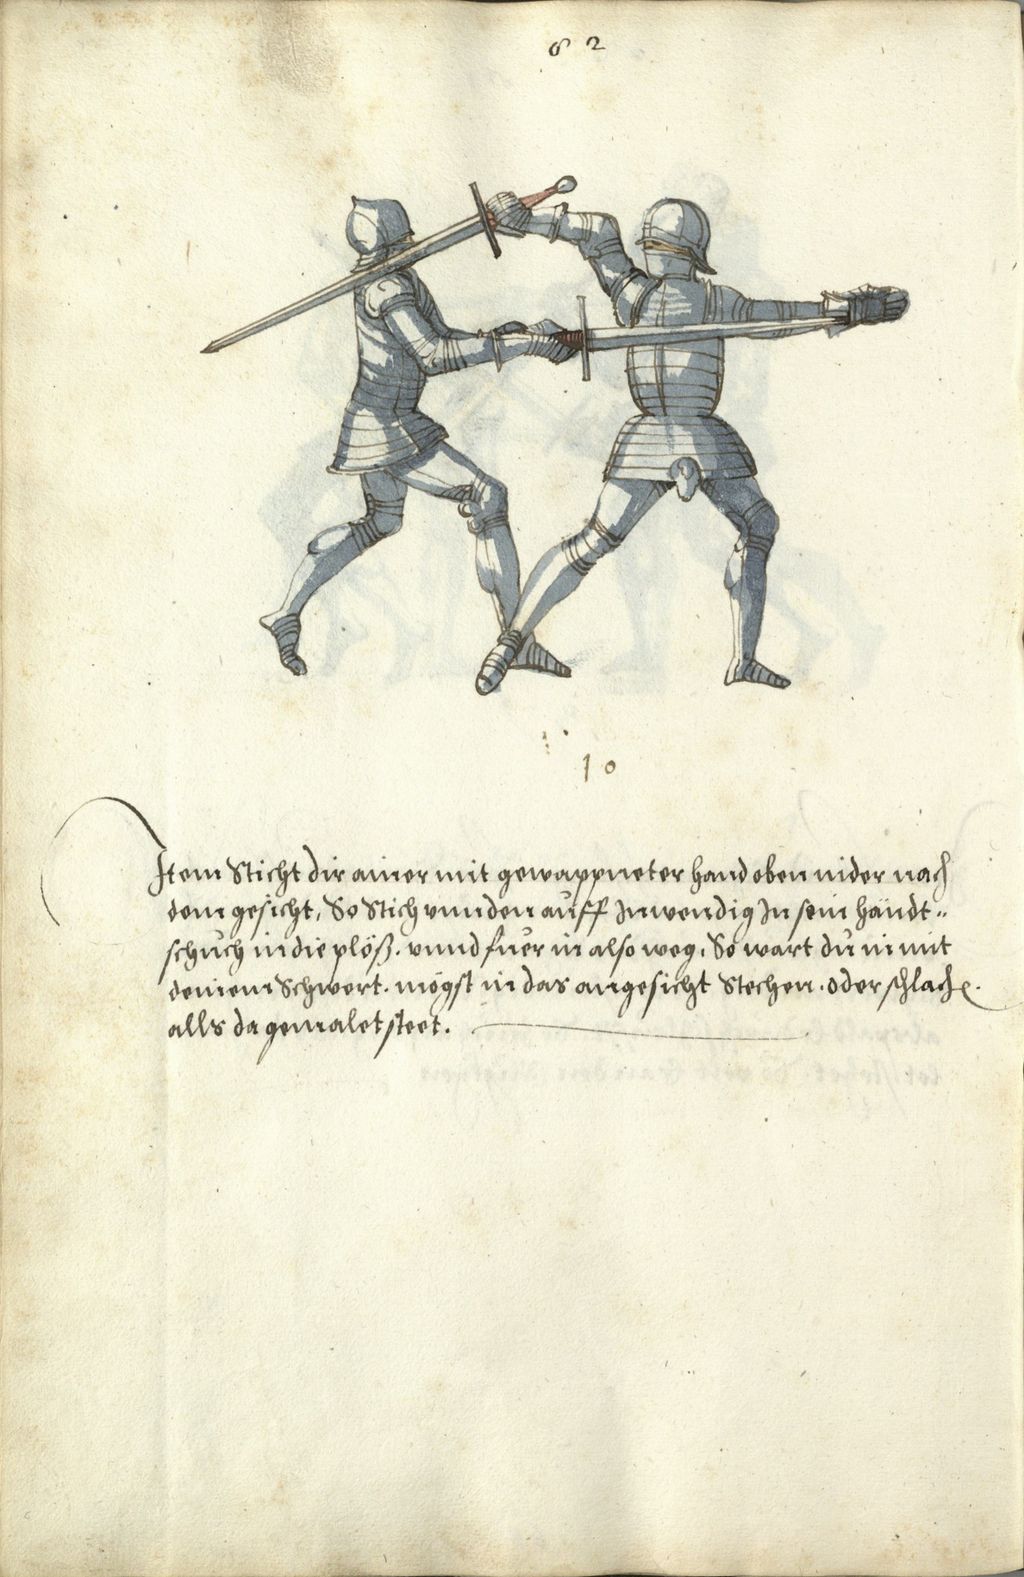 62
10
Item Sticht dir ainer mit gewappneter hand oben nider nach
dem gesicht, So Stich vnnden auff Inwendig In sein händt„
schuch in die plöß. vnnd fuer in also weg, So wart du in mit
deinem Schwert. mögst in das angesicht Stechen. oder schlache.
alls da gemalet steet.